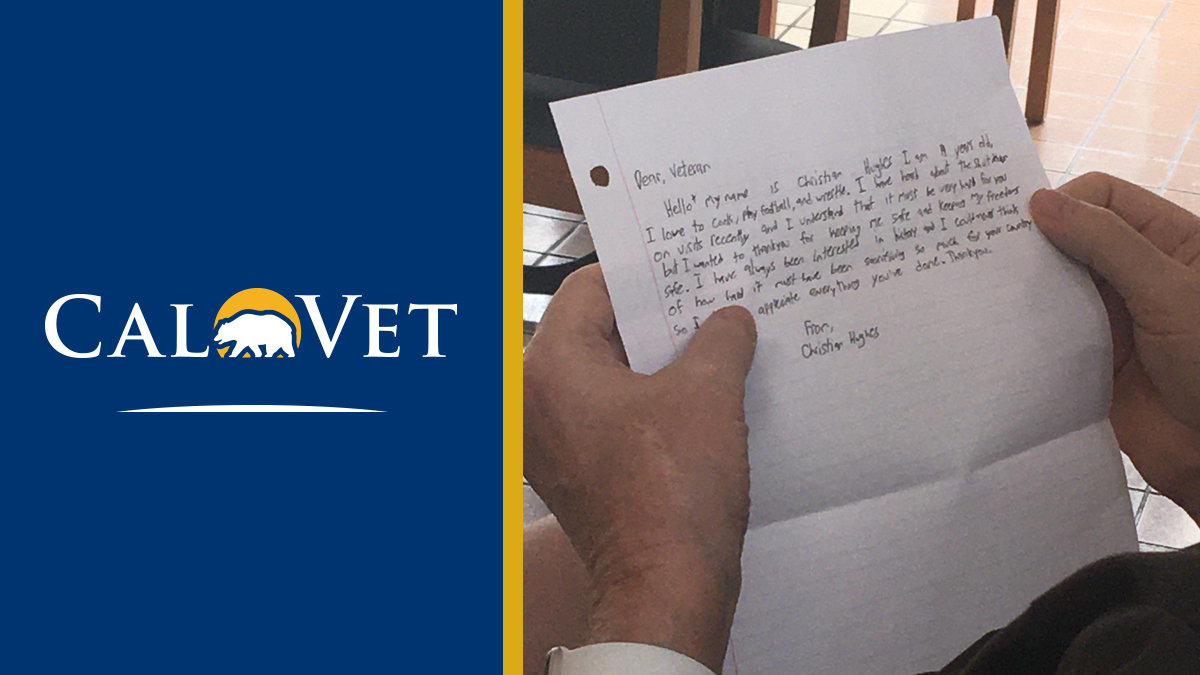 CALVET
Dear, Veteran
Hello my name is Christian Hughes I am years old,
I love to cook, play football, and wrestle. I have heard about the shutdown
on visits recently and I understand that it must be very hard for you
but I wanted to thankyou for keeping me safe and keeping my freedoms
safe. I have always been interested in history and I could not think
of how hard it must have been sacrificing so much for your country
so I appreciate everything you've done. Thankyou.
From,
Christian Hughes